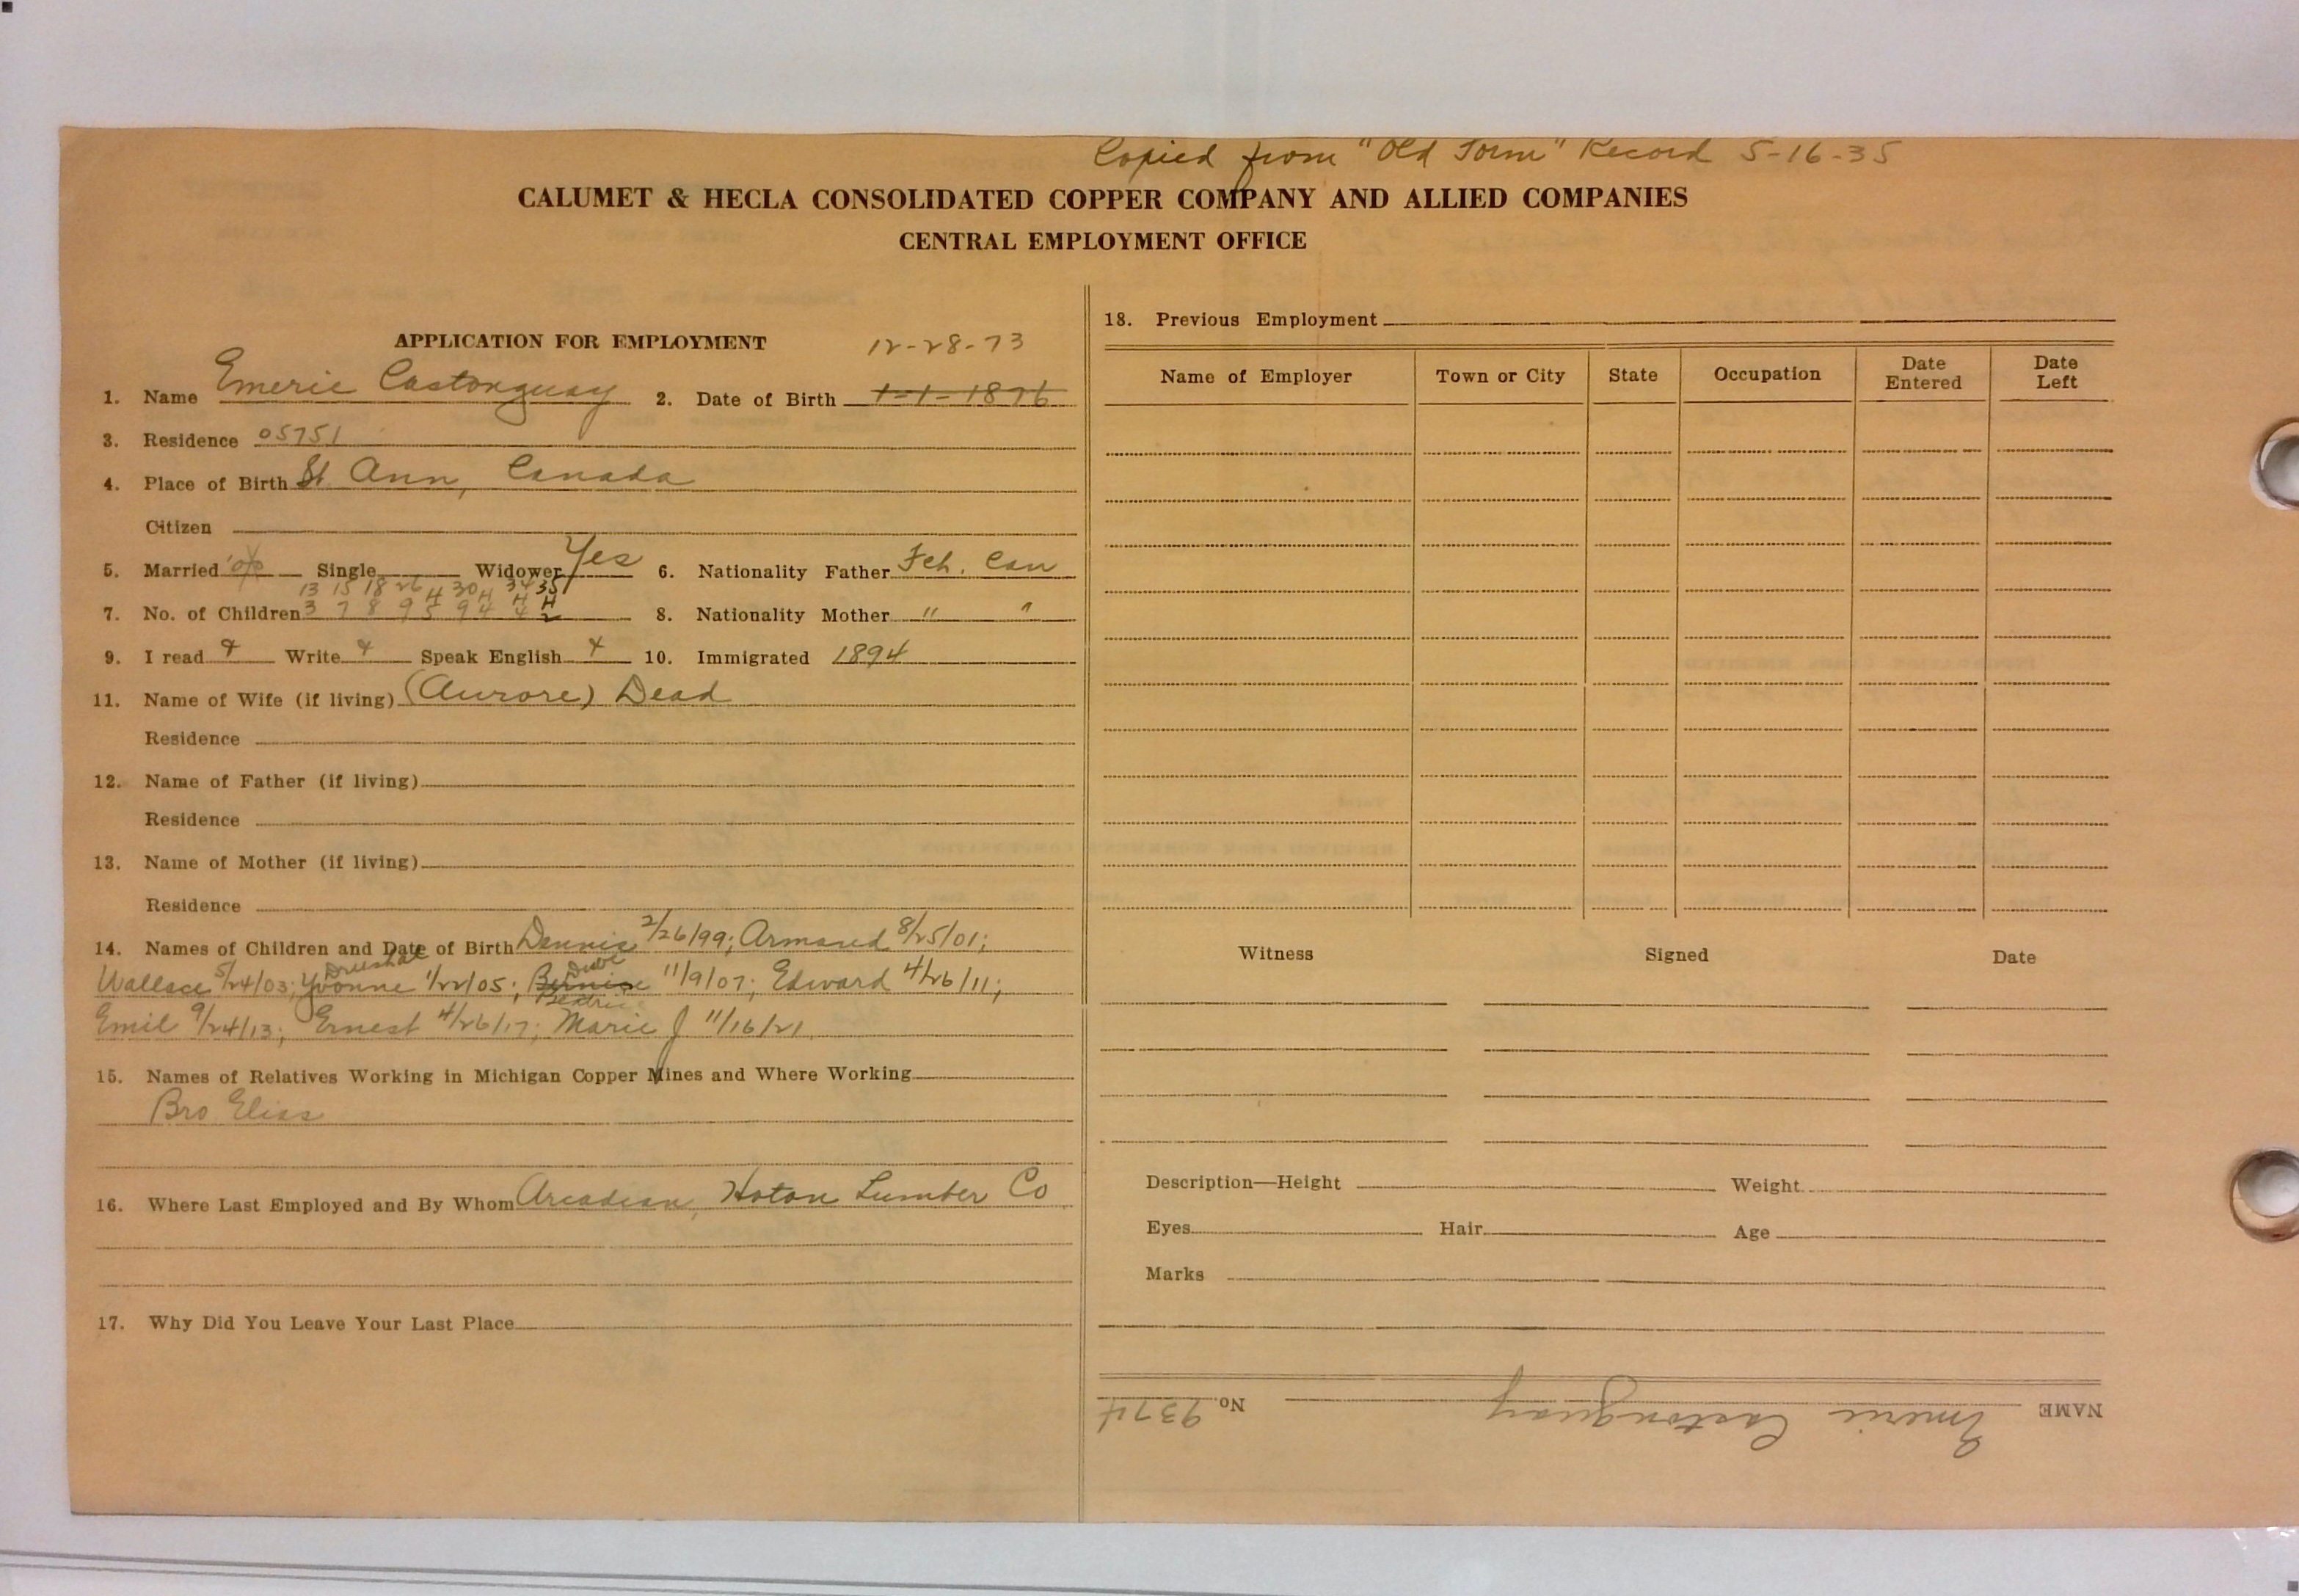 Copied from "Old Form" Record 5-16-35
CALUMET & HECLA CONSOLIDATED COPPER COMPANY AND ALLIED COMPANIES
CENTRAL EMPLOYMENT OFFICE
APPLICATION FOR EMPLOYMENT 12-28-73
1. Name Emeric Castonguay 2. Date of Birth 1-1-1876
3. Residence 05751
4. Place of Birth St Ann, Canada
Citizen
5. Married Single Widower Yes 6. Nationality Father Fch. Can
13 15 18 26 30 34 35
7. No. of Children 3 7 8 9 5 9 4 4 2 8. Nationality Mother " "
9. I read Write Speak English 10. Immigrated 1894
11. Name of Wife (if living) (Aurore) Dead
Residence
12. Name of Father (if living)
Residence
13. Name of Mother (if living)
Residence
14. Names of Children and Date of Birth Dennis 2/26/99; Armand 8/25/01;
Wallace 5/24/03; Yvonne 1/22/05; Bernice 11/9/07; Edward 4/26/11;
Beatrice
Emil 9/24/13; Ernest 4/26/17; Marie J 11/16/21
15. Names of Relatives Working in Michigan Copper Mines and Where Working
Bro Elias
16. Where Last Employed and By Whom Arcadian, Hoton Lumber Co
17. Why Did You Leave Your Last Place
18. Previous Employment
Name of Employer Town or City State Occupation Date Entered Date Left
Witness Signed Date
Description—Height Weight
Eyes Hair Age
Marks
NAME Emeric Castonguay No. 9374